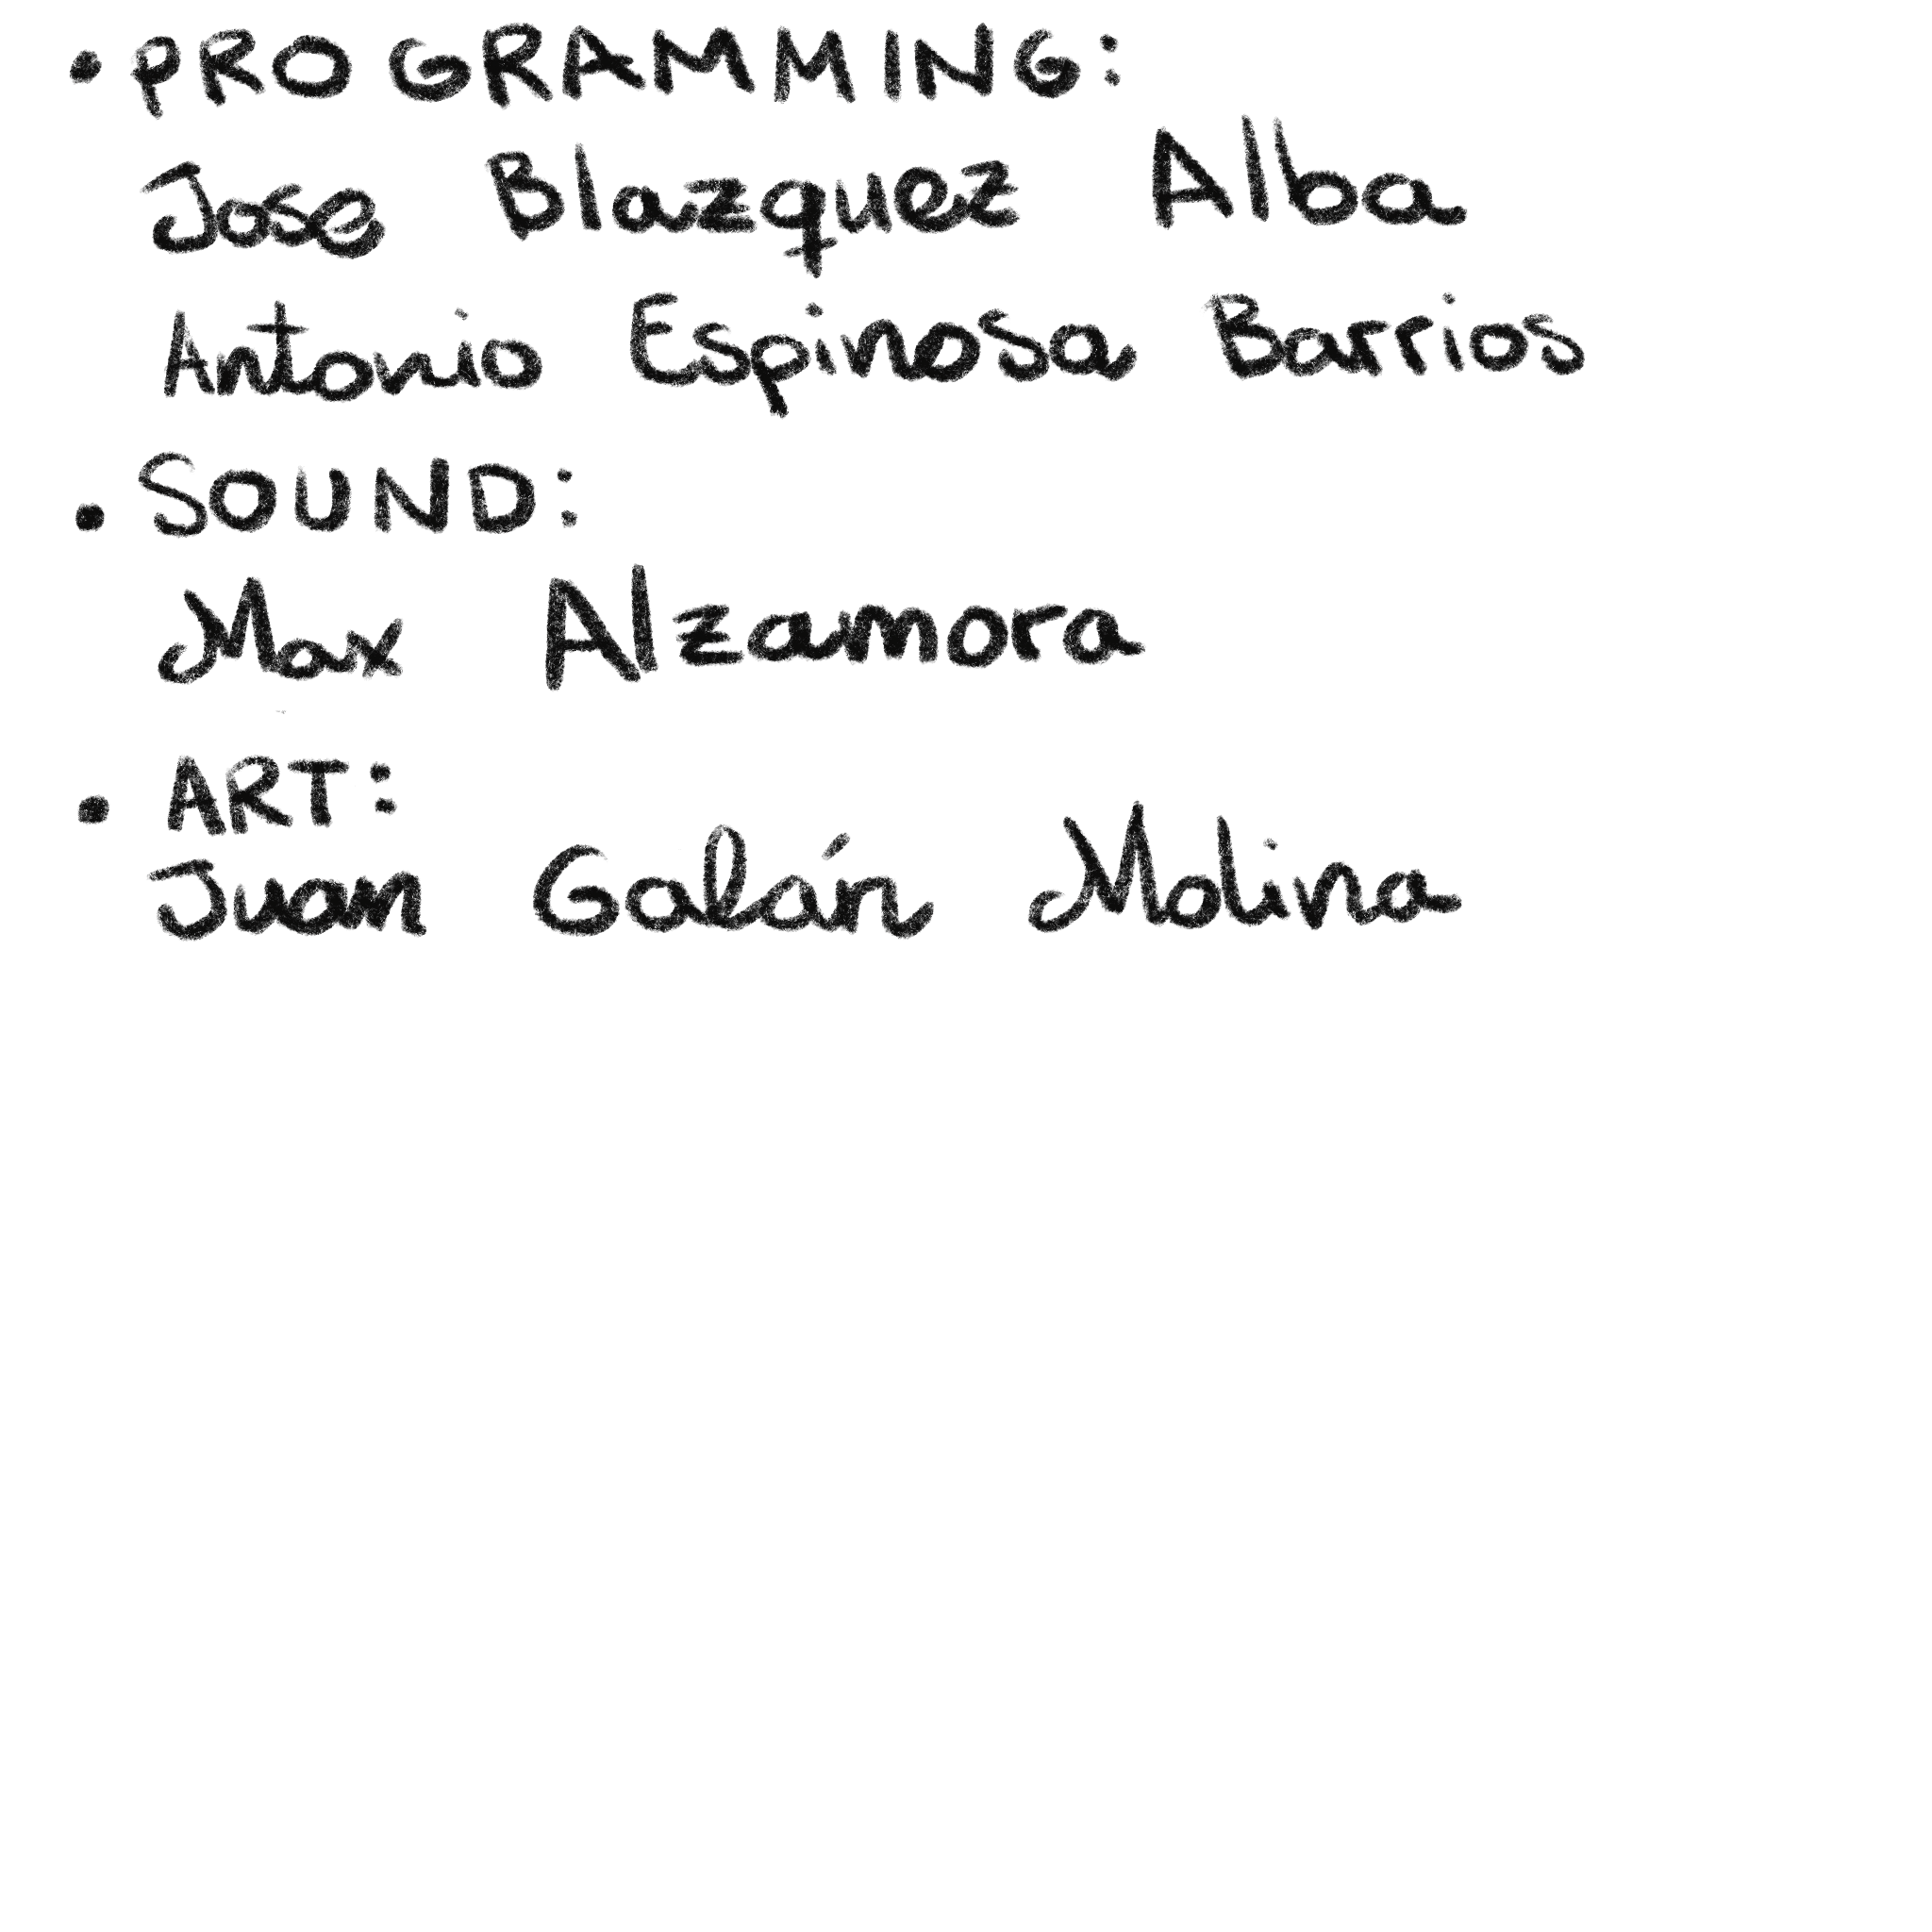 • PROGRAMMING:
Jose Blazquez Alba
Antonio Espinosa Barrios
• SOUND:
Max Alzamora
• ART:
Juan Galán Molina